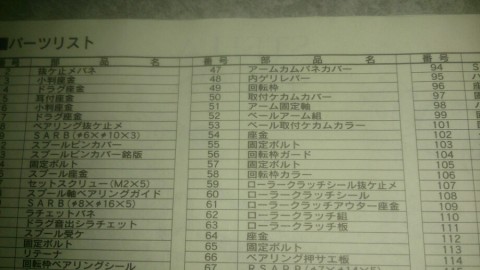 ■パーツリスト
番号 部品名 番号 部品名 番号
2 抜ケ止メバネ 47 アームカムバネカバー 94
3 小判座金 48 内ゲリレバー 95
4 ドラグ座金 49 回転枠 96
5 耳付座金 50 取付ケカムカバー 97
6 小判座金 51 アーム固定軸 98
7 ドラグ座金 52 ベールアーム組 99
ベアリング抜ケ止メ 53 ベール取付ケカムカラー 100
SARB(#6×#10×3) 54 座金 101
スプールピンカバー 55 固定ボルト 102
スプールピンカバー銘版 56 回転枠ガード 103
固定ボルト 57 固定ボルト 104
スプール座金 58 回転枠カラー 105
セットスクリュー(M2×5) 59 ローラークラッチシール抜ケ止メ 106
スプール軸ベアリングガイド 60 ローラークラッチシール 107
SARB(#8×#16×5) 61 ローラークラッチアウター座金 108
ラチェットバネ 62 ローラークラッチ組 109
ドラグ音出シラチェット 63 ローラークラッチ 110
スプール受ケ 64 座金 111
固定ボルト 65 固定ボルト 112
リテーナ 66 ベアリング押サエ板 113
回転枠ベアリングシール 67 114